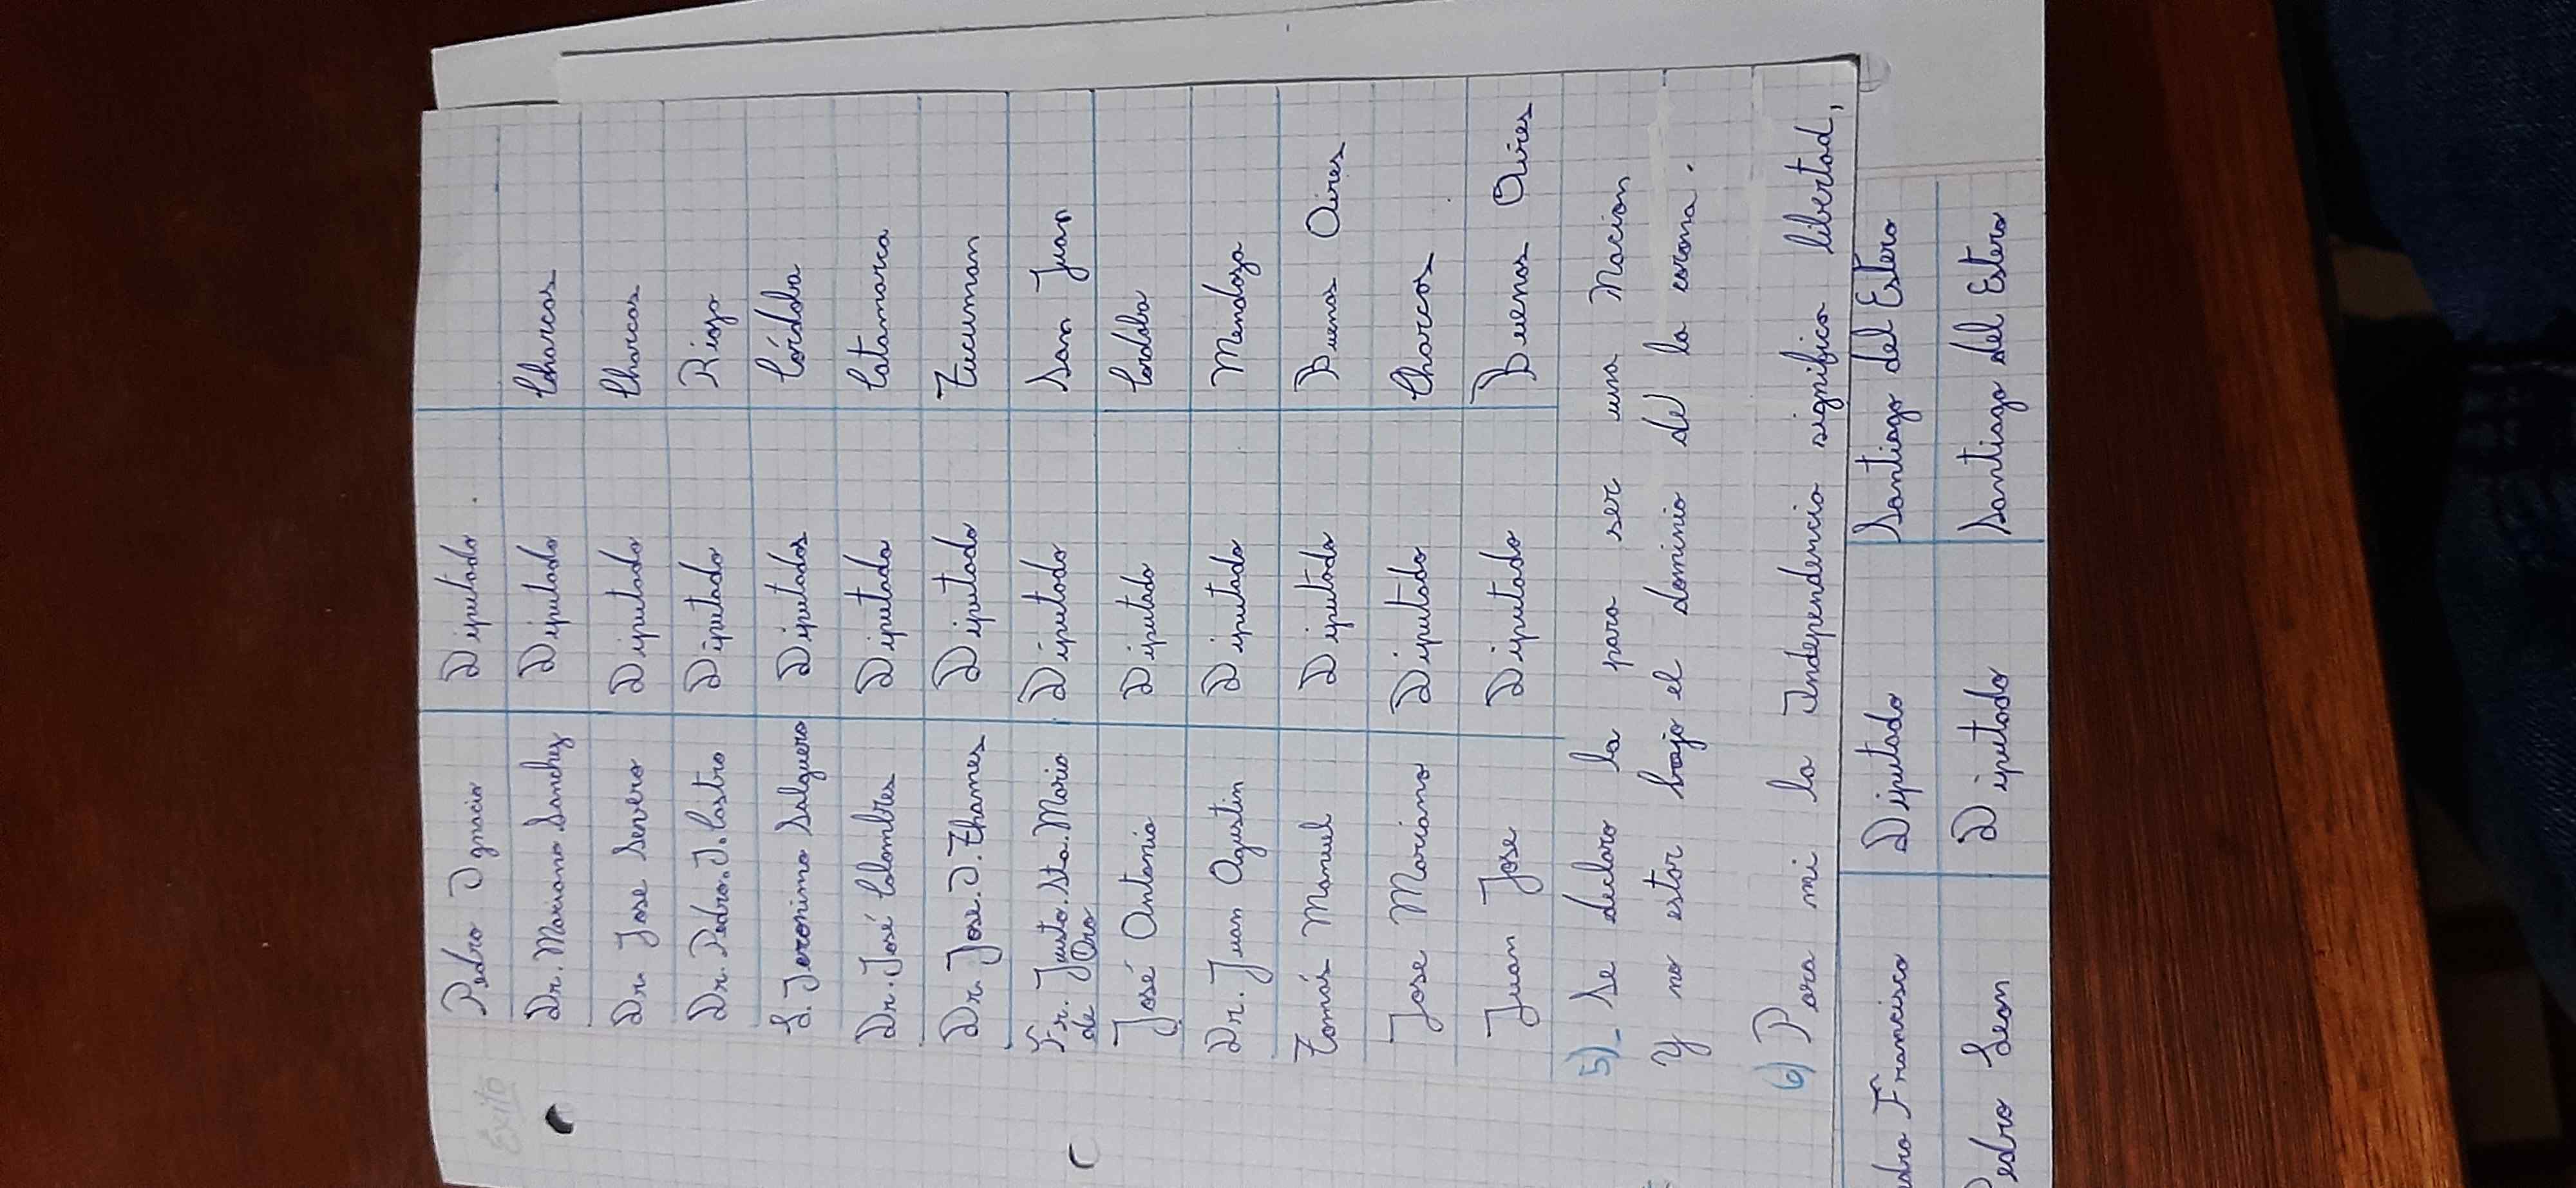 Éxito
Pedro Ignacio Diputado
Dr. Mariano Sanchez Diputado Charcas
Dr. Jose Severo Diputado Charcas
Dr. Pedro. I. Castro Diputado Rioja
L. Jeronimo Salguero Diputados Córdoba
Dr. José Colombres Diputado Catamarca
Dr. Jose. I. Thames Diputado Tucuman
Fr. Justo. Sta. Maria Diputado San Juan
de Oro
José Antonio Diputado Cordoba
Dr. Juan Agustin Diputado Mendoza
Tomás Manuel Diputado Buenos Aires
Jose Mariano Diputado Charcas
Juan Jose Diputado Buenos Aires
5)_ Se declaro la para ser una Nacion
Y no estar bajo el dominio de la corona.
6) Para mi la Independencia significa libertad,
Francisco Diputado Santiago del Estero
Pedro Leon Diputado Santiago del Estero